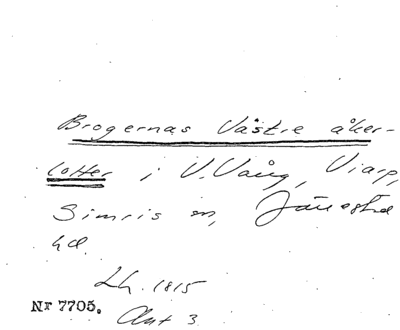 Brogernas Västre åker-
lotter i V. Vång, Viarp,
Simris sn, Järrestad
hd.
Lh. 1815
Nr 7705. Akt 3